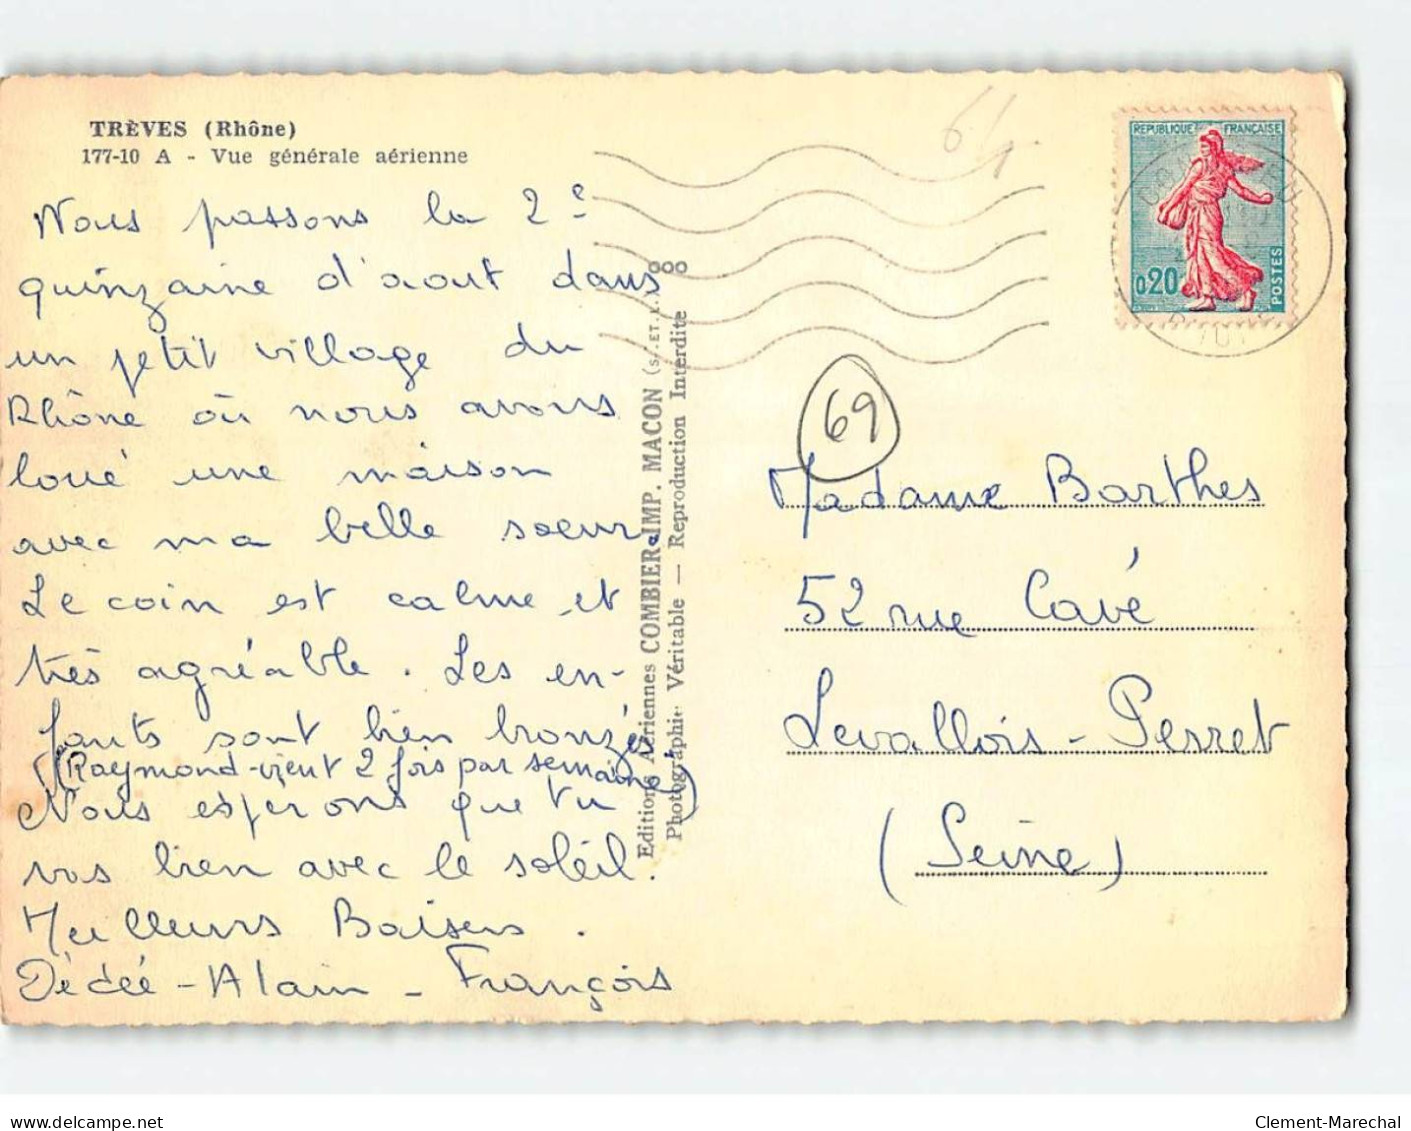 TRÈVES (Rhône)
177-10 A - Vue générale aérienne
Nous passons la 2e
quinzaine d'aout dans
un petit village du
Rhône où nous avons
loué une maison
avec ma belle soeur.
Le coin est calme et
très agréable. Les en-
fants sont bien bronzés
(Raymond-vient 2 fois par semaine)
Nous espérons que tu
vas bien avec le soleil.
Meilleurs Baisers.
Dédée - Alain - François
Editions Aériennes COMBIER IMP. MACON (S.-ET-L.)
Photographie Véritable — Reproduction Interdite
64
69
REPUBLIQUE FRANÇAISE
0,20
POSTES
Madame Barthes
52 rue Cavé
Levallois-Perret
(Seine)
delcampe.net
Clement-Marechal